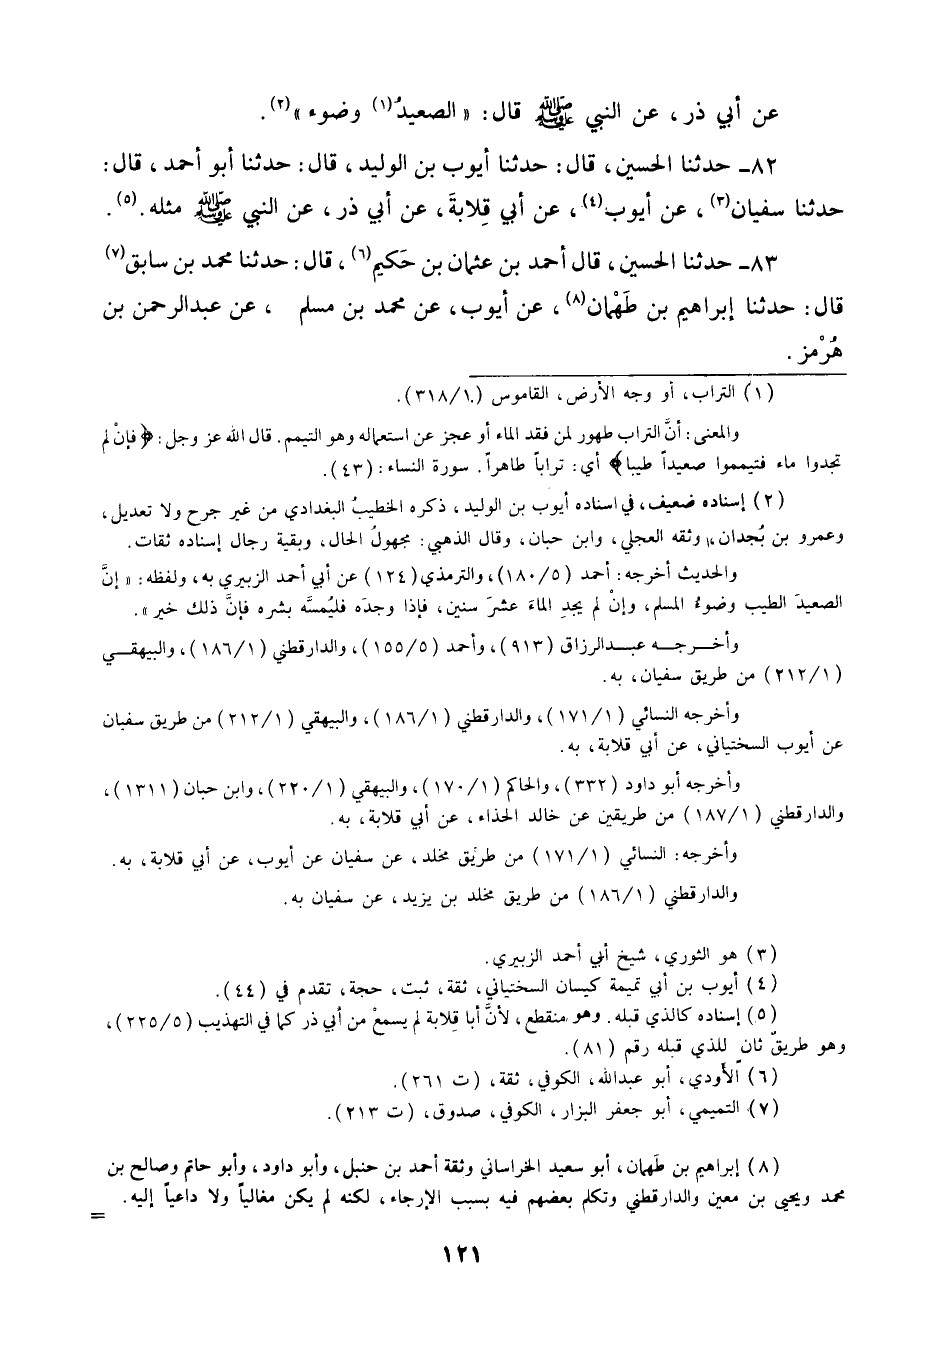 عن أبي ذر ، عن النبي ﷺ قال : « الصعيدُ(١) وضوء »(٢).
٨٢ـ حدثنا الحسين ، قال : حدثنا أيوب بن الوليد ، قال : حدثنا أبو أحمد ، قال :
حدثنا سفيان(٣) ، عن أيوب(٤) ، عن أبي قِلابةَ ، عن أبي ذر ، عن النبي ﷺ مثله .(٥) .
٨٣ـ حدثنا الحسين ، قال أحمد بن عثمان بن حَكيم(٦) ، قال : حدثنا محمد بن سابق(٧)
قال : حدثنا إبراهيم بن طَهْمان(٨) ، عن أيوب ، عن محمد بن مسلم ، عن عبدالرحمن بن
هُرْمز .
(١) التراب ، أو وجه الأرض ، القاموس (٣١٨/١).
والمعنى : أنَّ التراب طهور لمن فقد الماء أو عجز عن استعماله وهو التيمم . قال الله عز وجل : ﴿ فإنْ لم
تجدوا ماء فتيمموا صعيداً طيبا ﴾ أي : تراباً طاهراً . سورة النساء : (٤٣).
(٢) إسناده ضعيف ، في اسناده أيوب بن الوليد ، ذكره الخطيبُ البغدادي من غير جرح ولا تعديل ،
وعمرو بن بُجدان ، وثقه العجلي ، وابن حبان ، وقال الذهبي : مجهولُ الحال ، وبقية رجال إسناده ثقات .
والحديث أخرجه : أحمد (١٨٠/٥)، والترمذي (١٢٤) عن أبي أحمد الزبيري به ، ولفظه : « إنَّ
الصعيدَ الطيب وضوءُ المسلم ، وإنْ لم يجدِ الماءَ عشرَ سنين ، فإذا وجدَه فليُمسَّه بشره فإنَّ ذلك خير ».
وأخرجه عبدالرزاق (٩١٣)، وأحمد (١٥٥/٥)، والدارقطني (١٨٦/١)، والبيهقي
(٢١٢/١) من طريق سفيان ، به .
وأخرجه النسائي (١٧١/١)، والدارقطني (١٨٦/١)، والبيهقي (٢١٢/١) من طريق سفيان
عن أيوب السختياني ، عن أبي قلابة ، به .
وأخرجه أبو داود (٣٣٢)، والحاكم (١٧٠/١)، والبيهقي (٢٢٠/١)، وابن حبان (١٣١١)،
والدارقطني (١٨٧/١) من طريقين عن خالد الحذاء ، عن أبي قلابة ، به .
وأخرجه : النسائي (١٧١/١) من طريق مخلد ، عن سفيان عن أيوب ، عن أبي قلابة ، به .
والدارقطني (١٨٦/١) من طريق مخلد بن يزيد ، عن سفيان به .
(٣) هو الثوري ، شيخ أبي أحمد الزبيري .
(٤) أيوب بن أبي تميمة كيسان السختياني ، ثقة ، ثبت ، حجة ، تقدم في (٤٤).
(٥) إسناده كالذي قبله . وهو منقطع ، لأنَّ أبا قِلابة لم يسمعْ من أبي ذر كما في التهذيب (٢٢٥/٥)،
وهو طريقٌ ثانٍ للذي قبله رقم (٨١).
(٦) الأودي ، أبو عبدالله ، الكوفي ، ثقة ، (ت ٢٦١).
(٧) التميمي ، أبو جعفر البزار ، الكوفي ، صدوق ، (ت ٢١٣).
(٨) إبراهيم بن طَهمان ، أبو سعيد الخراساني وثقة أحمد بن حنبل ، وأبو داود ، وأبو حاتم وصالح بن
محمد ويحيى بن معين والدارقطني وتكلم بعضهم فيه بسبب الإرجاء ، لكنه لم يكن مغالياً ولا داعياً إليه .
=
١٢١